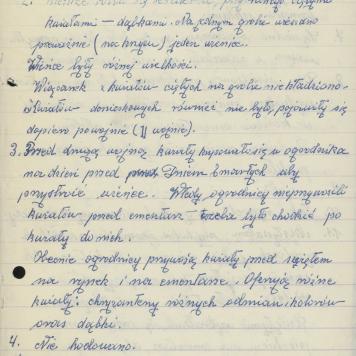 kwiatami – dąbkami. Na jednym grobie wieszano
przeważnie (na krzyżu) jeden wieniec.
Wieńce były różnej wielkości.
Wiązanek i kwiatów ciętych na grobie nie kładziono.
Kwiatów doniczkowych również nie było, pojawiły się
dopiero po wojnie (II wojnie).
3. Przed drugą wojną kwiaty kupowało się w ogrodnika
na dzień przed Dniem Zmarłych aby
przystroić wieńce. Wtedy ogrodnicy nie przywozili
kwiatów przed cmentarz – trzeba było chodzić po
kwiaty do nich.
Obecnie ogrodnicy przywożą kwiaty przed świętem
na rynek i na cmentarze. Oferują różne
kwiaty: chryzantemy różnych odmian i kolorów
oraz dąbki.
4. Nie hodowano.